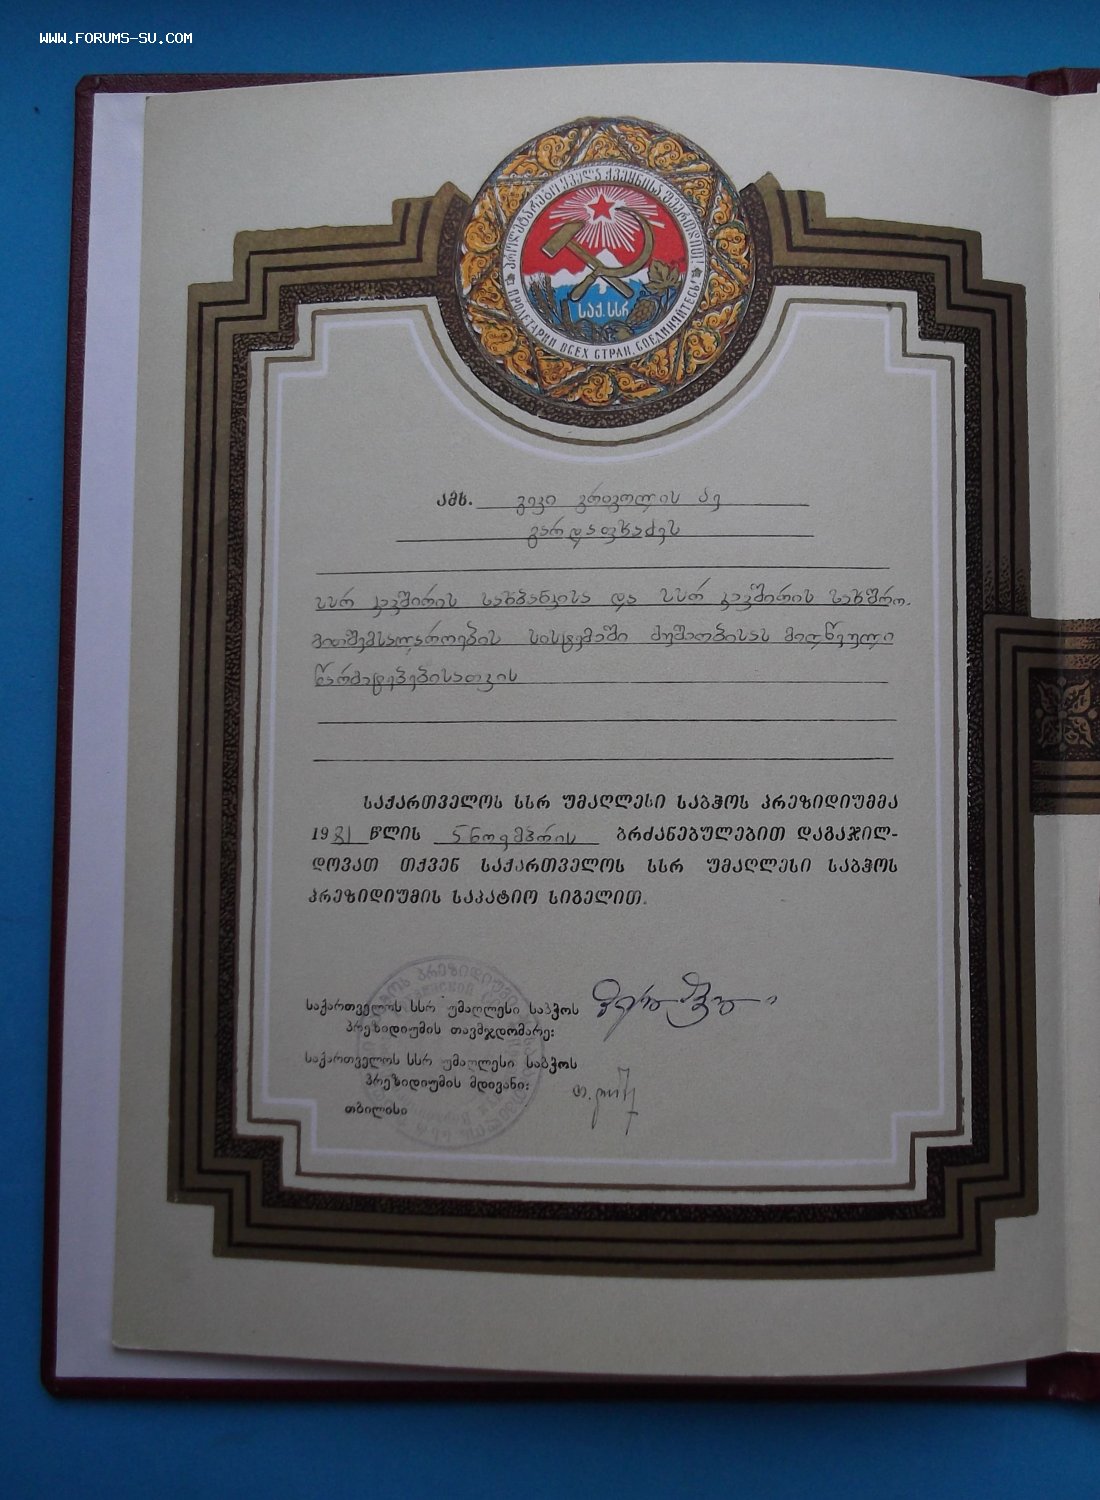 WWW.FORUMS-SU.COM
პროლეტარებო ყველა ქვეყნისა შეერთდით!
ПРОЛЕТАРИИ ВСЕХ СТРАН, СОЕДИНЯЙТЕСЬ!
საქ. სსრ
ამხ. გივი გრიგოლის ძე
ვარდაფხაძეს
სსრ კავშირის სახბანკისა და სსრ კავშირის სახშრომ
სისტემაში მუშაობისას მიღწეული
წარმატებებისათვის
საქართველოს სსრ უმაღლესი საბჭოს პრეზიდიუმმა
1981 წლის 5 ნოემბრის ბრძანებულებით დაგაჯილ-
დოვათ თქვენ საქართველოს სსრ უმაღლესი საბჭოს
პრეზიდიუმის საპატიო სიგელით.
საქართველოს სსრ უმაღლესი საბჭოს
პრეზიდიუმის თავმჯდომარე:
საქართველოს სსრ უმაღლესი საბჭოს
პრეზიდიუმის მდივანი:
თბილისი